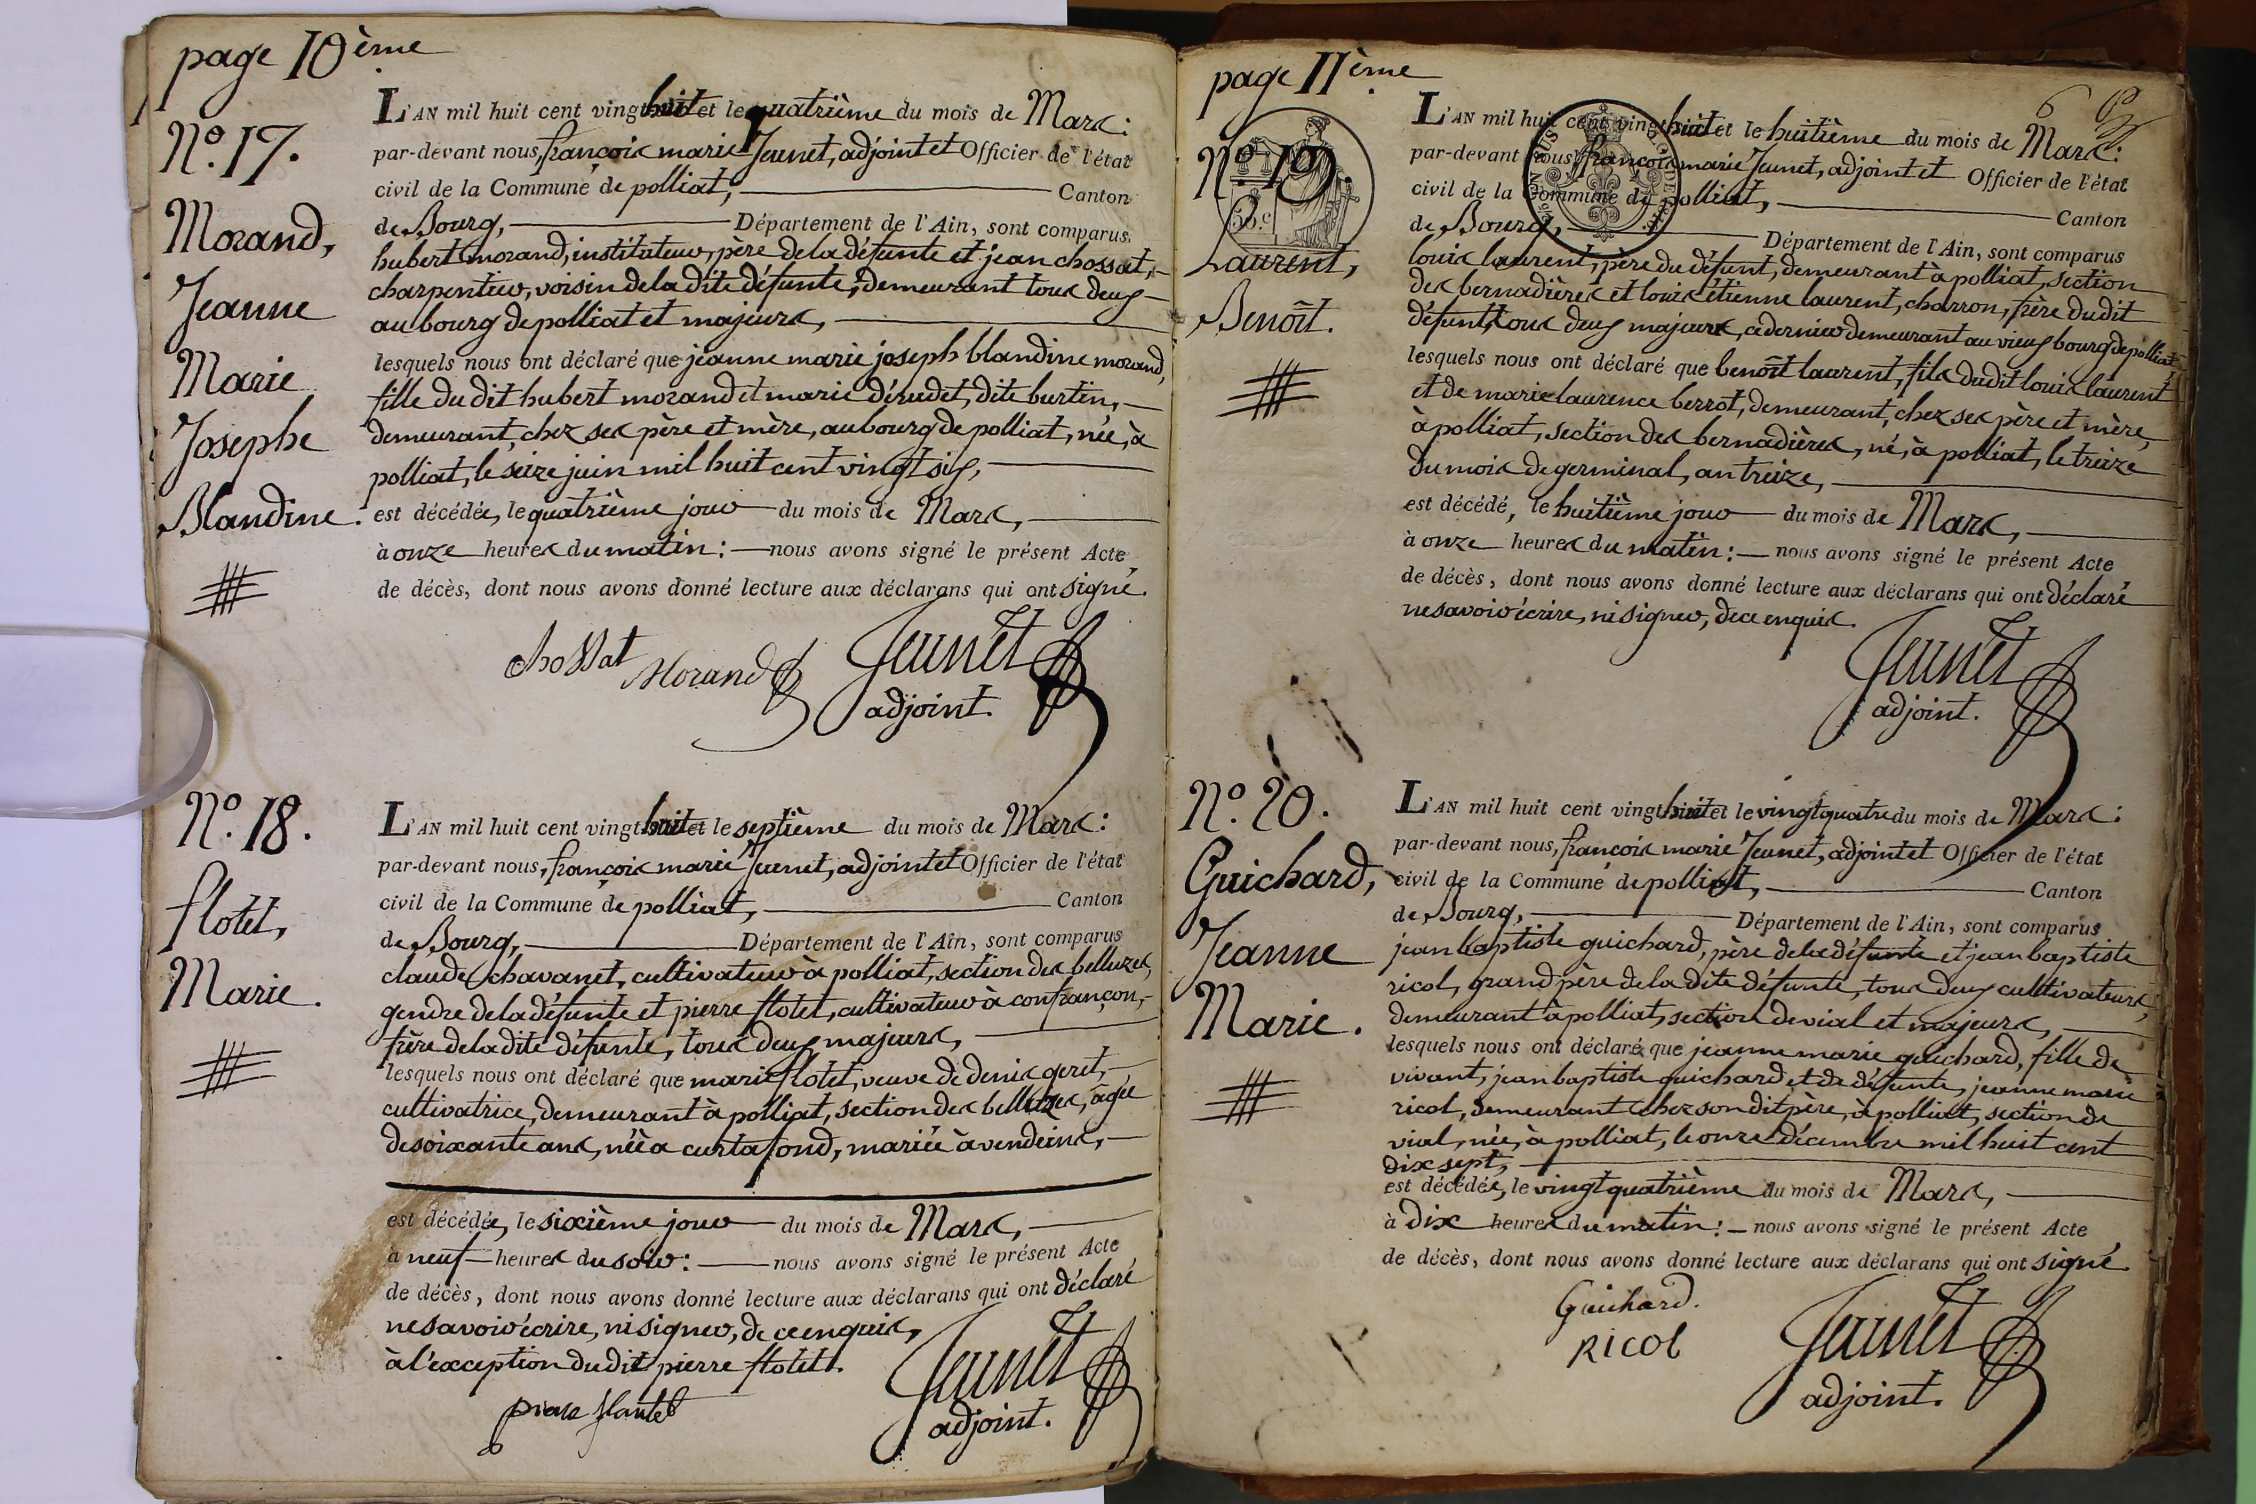 page 10ème
N.º 17.
Morand,
Jeanne
Marie
Josephe
Blandine.
L'AN mil huit cent vingt huit et le quatrième du mois de Mars:
par-devant nous, françois marie Jeunet, adjoint et Officier de l'état
civil de la Commune de polliat, Canton
de Bourg, Département de l'Ain, sont comparus
hubert morand, instituteur, père de la défunte et jean chossat,
charpentier, voisin de la dite défunte, demeurant tous deux
au bourg de polliat et majeurs,
lesquels nous ont déclaré que jeanne marie joseph blandine morand,
fille du dit hubert morand et marie dérudet, dite burtin,
demeurant, chez ses père et mère, au bourg de polliat, née, à
polliat, le seize juin mil huit cent vingt six,
est décédée, le quatrième jour du mois de Mars,
à onze heures du matin: nous avons signé le présent Acte
de décès, dont nous avons donné lecture aux déclarans qui ont signé.
chossat Morand Jeunet
adjoint.
N.º 18.
flotet,
Marie.
L'AN mil huit cent vingt huit et le septième du mois de Mars:
par-devant nous, françois marie Jeunet, adjoint et Officier de l'état
civil de la Commune de polliat, Canton
de Bourg, Département de l'Ain, sont comparus
claude chavanet, cultivateur à polliat, section des belluzes,
gendre de la défunte et pierre flotet, cultivateur à confrançon,
frère de la dite défunte, tous deux majeurs,
lesquels nous ont déclaré que marie flotet, veuve de denis geret,
cultivatrice, demeurant à polliat, section des belluzes, âgée
de soixante ans, née à curtafond, mariée à vendeins,
est décédée, le sixième jour du mois de Mars,
à neuf heures du soir: nous avons signé le présent Acte
de décès, dont nous avons donné lecture aux déclarans qui ont déclaré
ne savoir écrire, ni signer, de ce enquis,
à l'exception du dit pierre flotet.
Jeunet
adjoint.
page 11ème
6
N.º 19.
Laurent,
Benoît.
L'AN mil huit cent vingt huit et le huitième du mois de Mars:
par-devant nous, françois marie Jeunet, adjoint et Officier de l'état
civil de la Commune de polliat, Canton
de Bourg, Département de l'Ain, sont comparus
louis laurent, père du défunt, demeurant à polliat, section
des bernadières et louis étienne laurent, charron, frère du dit
défunt, tous deux majeurs, ce dernier demeurant au vieux bourg de polliat
lesquels nous ont déclaré que benoît laurent, fils du dit louis laurent
et de marie laurence berrot, demeurant, chez ses père et mère,
à polliat, section des bernadières, né, à polliat, le treize
du mois de germinal, an treize,
est décédé, le huitième jour du mois de Mars,
à onze heures du matin: nous avons signé le présent Acte
de décès, dont nous avons donné lecture aux déclarans qui ont déclaré
ne savoir écrire, ni signer, de ce enquis.
Jeunet
adjoint.
N.º 20.
Guichard,
Jeanne
Marie.
L'AN mil huit cent vingt huit et le vingt quatre du mois de Mars:
par-devant nous, françois marie Jeunet, adjoint et Officier de l'état
civil de la Commune de polliat, Canton
de Bourg, Département de l'Ain, sont comparus
jean baptiste guichard, père de la défunte et jean baptiste
ricol, grand père de la dite défunte, tous deux cultivateurs,
demeurant à polliat, section de vial et majeurs,
lesquels nous ont déclaré que jeanne marie guichard, fille de
vivant, jean baptiste guichard et de défunte, jeanne marie
ricol, demeurant chez son dit père, à polliat, section de
vial, née, à polliat, le onze décembre mil huit cent
dix sept,
est décédée, le vingt quatrième du mois de Mars,
à dix heures du matin: nous avons signé le présent Acte
de décès, dont nous avons donné lecture aux déclarans qui ont signé.
Guichard.
RICOL
Jeunet
adjoint.